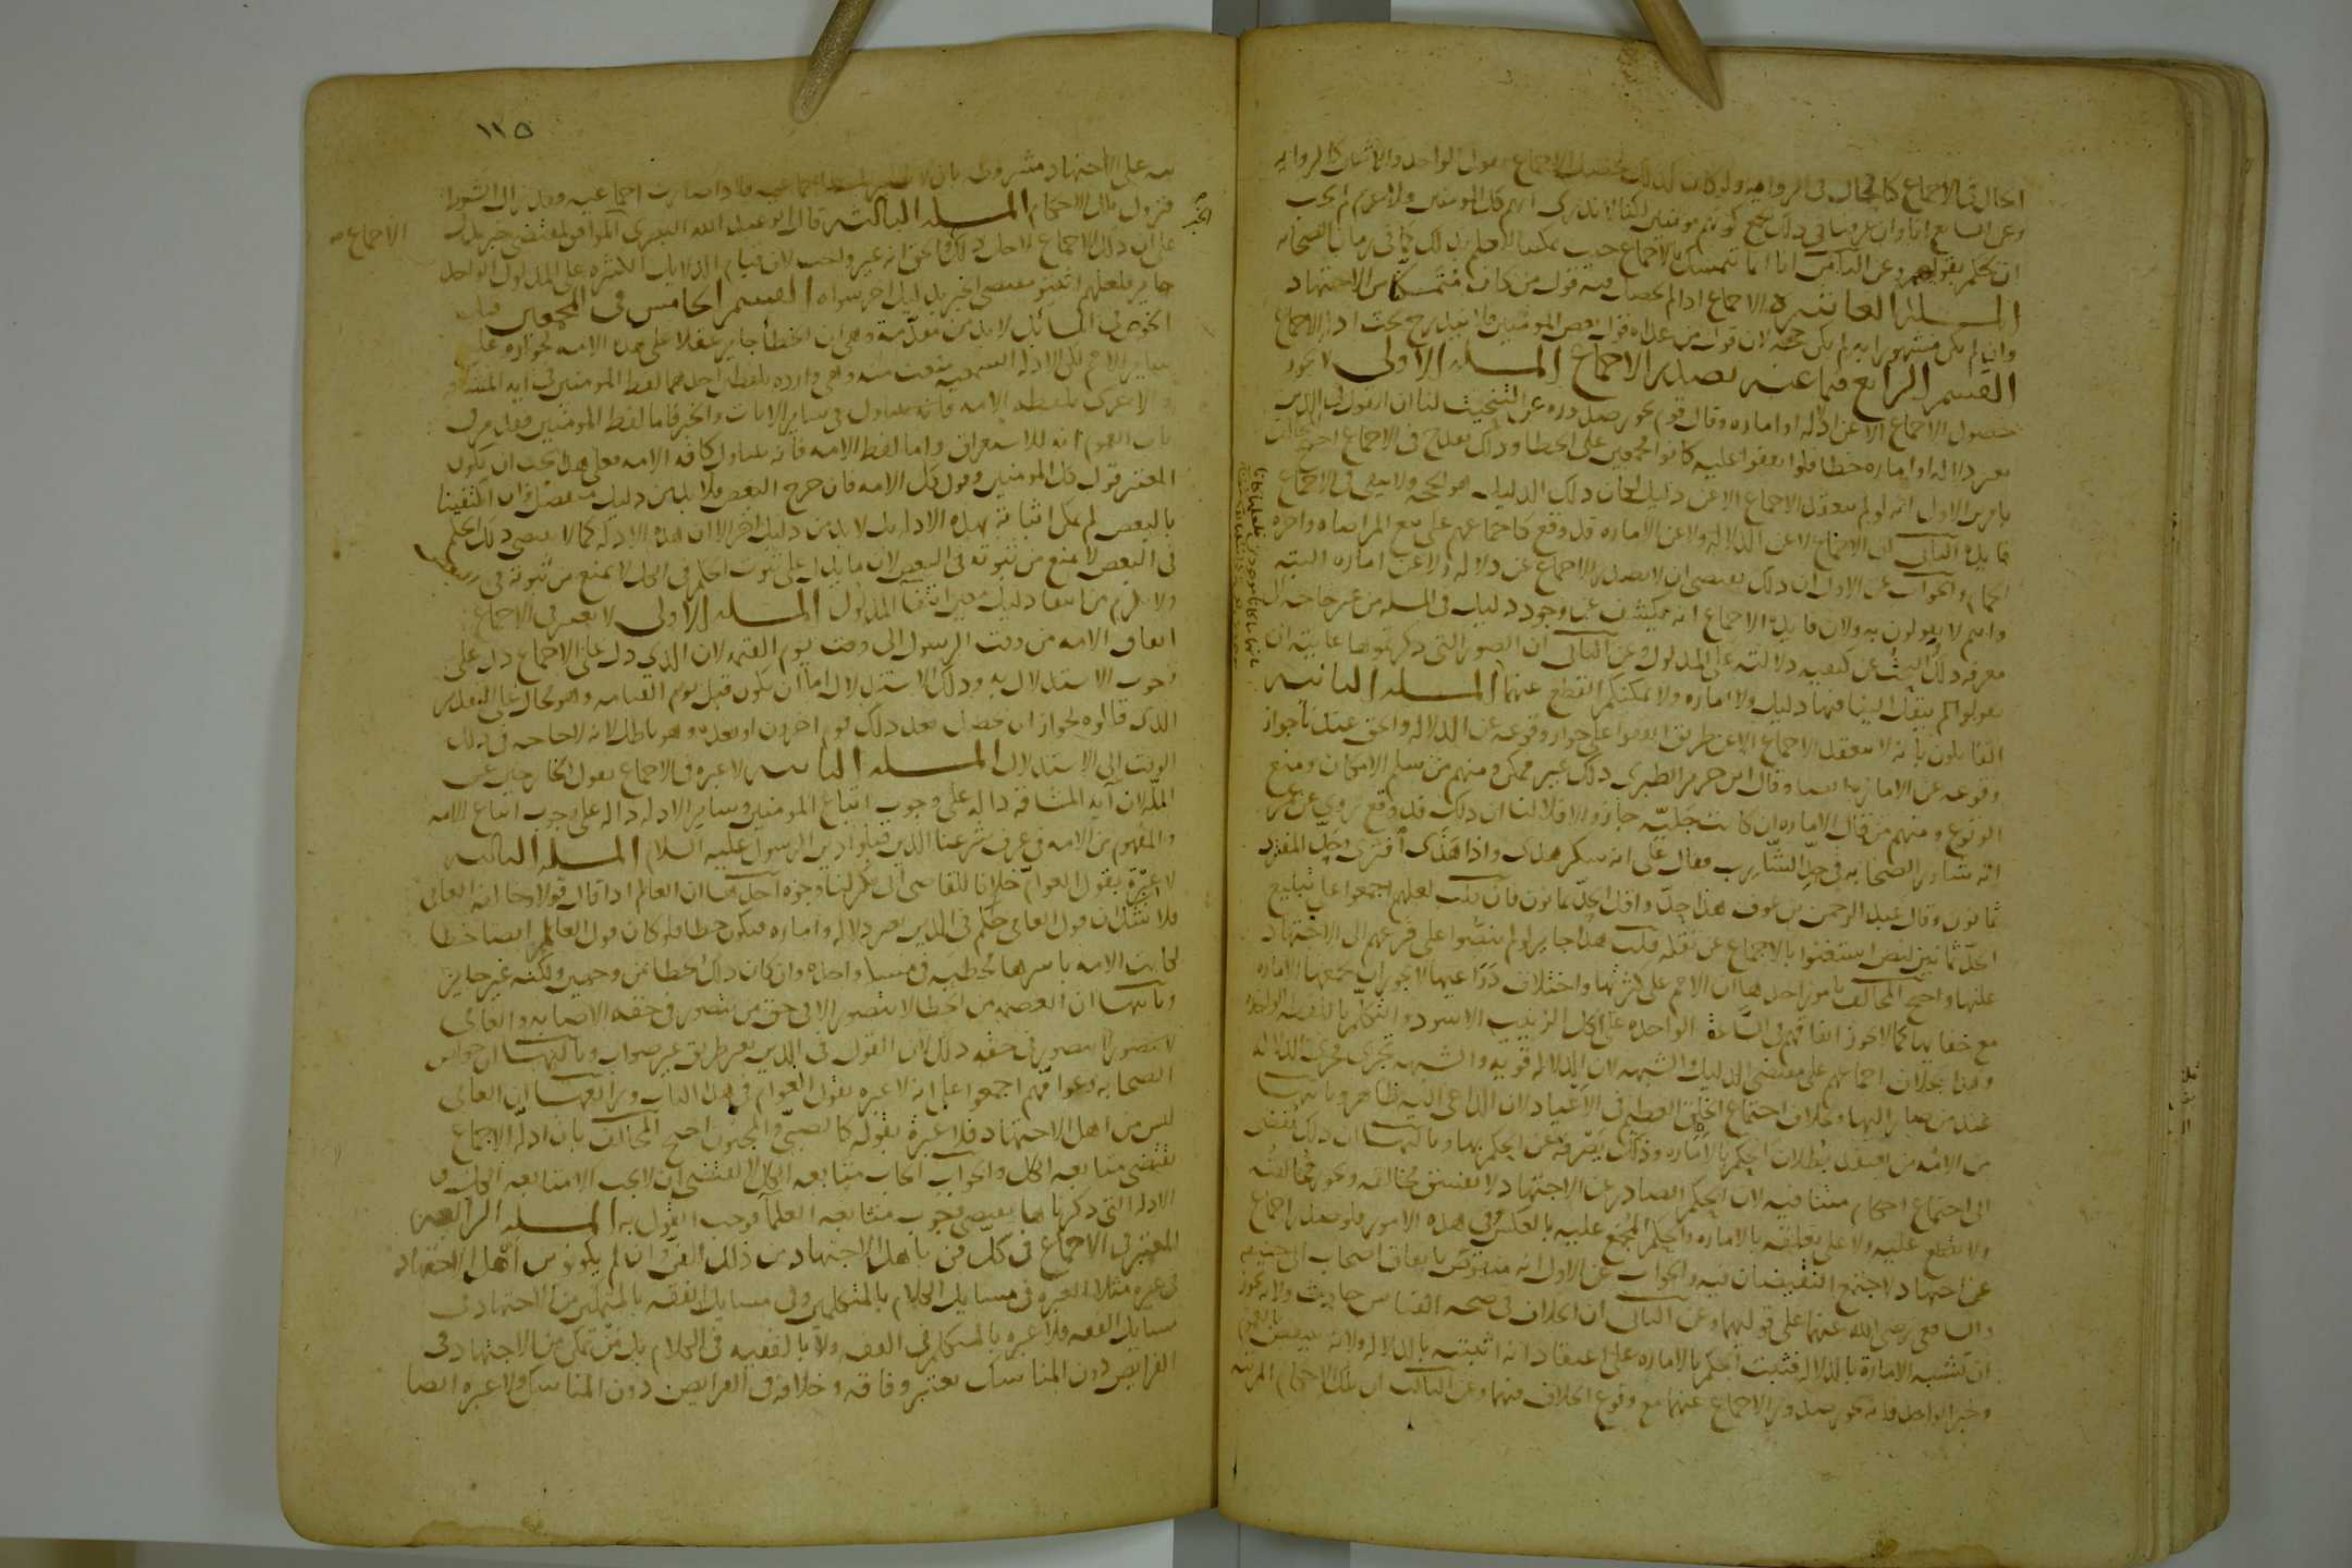 الحال في الاجماع كالحال في الرواية ولو كان كذلك لحصل الاجماع بقول الواحد والاثنين كالرواية
وعن السابع انا وان عرفنا في ذلك جمع كونهم مومنين لكنا لا ندري انهم كل المومنين ولا يلزم لم يجب
ان نحكم بقولهم وعن الثامن انا انما نتمسك بالاجماع حيث يمكننا العلم بذلك كما في زمان الصحابة
المسلة العاشرة الاجماع اذا لم يحصل فيه قول من كان متمكنا من الاجتهاد
وان لم يكن مشهورا به لم يكن حجة لان قول من عداه قول بعض المومنين فلا يندرج تحت ادلة الاجماع
القسم الرابع فيما عنه يصدر الاجماع المسلة الاولى لا يجوز
حصول الاجماع الا عن دلالة او امارة وقال قوم يجوز صدوره عن التبخيت لنا ان القول في الدين
بغير دلالة او امارة خطا فلو اتفقوا عليه كانوا مجمعين على الخطا وذلك يقدح في الاجماع احتج المخالف
بامرين الاول انه لو لم ينعقد الاجماع الا عن دليل لكان ذلك الدليل هو الحجة ولا يبقى في الاجماع
فايدة الثاني ان الاجماع لا عن الدلالة ولا عن الامارة قد وقع كاجماعهم على بيع المراضاة واجرة
الحمام والجواب عن الاول ان ذلك يقتضي ان لا يصدر الاجماع عن دلالة ولا عن امارة البتة
وانتم لا يقولون به ولان فايدة الاجماع انه يكشف عن وجود دليل في المسلة من غير حاجة الى
معرفة ذلك والبحث عن كيفية دلالته على المدلول وعن الثاني ان الصور التي ذكرتموها غايته ان
يقولوا لم ينقل الينا فيها دليل ولا امارة ولا يمكنكم القطع عنهما المسلة الثانية
القايلون بانه لا ينعقد الاجماع الا عن طريق اتفقوا على جواز وقوعه عن الدلالة والحق عندنا جواز
وقوعه عن الامارة ايضا وقال ابن جرير الطبري ذلك غير ممكن ومنهم من سلم الامكان ومنع
الوقوع ومنهم من قال الامارة ان كانت جلية جاز والا فلا لنا ان ذلك قد وقع روي عن عمر
انه شاور الصحابة في حد الشارب فقال علي انه سكر هذى واذا هذى افترى وحد المفتري
ثمانون وقال عبد الرحمن بن عوف هذا حد واقل الحد ثمانون فان قلت لعلهم اجمعوا على تبليغ
الحد ثمانين لنص استغنوا بالاجماع عن نقله قلت هذا جايز لولا انهم نصوا على فزعهم الى الاجتهاد
عليها واحتج المخالف بامور احدها ان الامة على كثرتها واختلاف دواعيها لا يجوز ان يجمعها الامارة
مع خفايها كما لا يجوز اتفاقهم في الساعة الواحدة على اكل الزبيب الاسود والتكلم باللفظة الواحدة
وهذا بخلاف اجماعهم على مقتضى الدليل والشبهة لان الدلالة قوية والشبهة تجري مجرى الدلالة
عند من صار اليها وبخلاف اجتماع الخلق العظيم في الاعياد لان الداعي اليه ظاهر وثانيها
من الامة من اعتقد بطلان الحكم بالامارة وذلك يصرفه عن الحكم بها وثالثها ان ذلك يفضي
الى اجتماع احكام متنافية لان الحكم الصادر عن الاجتهاد لا يفسق مخالفه ويجوز مخالفته
ولا يقطع عليه ولا على تعلقه بالامارة والحكم المجمع عليه بالعكس في هذه الامور فلو صدر اجماع
عن اجتهاد لاجتمع النقيضان فيه والجواب عن الاول انه منقوض باتفاق اصحاب ابي حنيفة
والشافعي رضي الله عنهما على قوليهما وعن الثاني ان الخلاف في صحة القياس حادث ولانه يجوز
ان تشتبه الامارة بالدلالة فثبت الحكم بالامارة على اعتقاد انه اثبته بالدلالة ولانه ينتقض بالعموم
وخبر الواحد فانه يجوز صدور الاجماع عنهما مع وقوع الخلاف فيهما وعن الثالث ان تلك الاحكام المرتبة
١١٥
على الاجتهاد مشروطة بان لا فاذا صارت اجماعية وقد زال الشرط
فتزول تلك الاحكام المسلة الثالثة قال ابو عبد الله البصري الموافق لمقتضى خبر يدل
على ان ذلك الاجماع لاجل ذلك والحق انه غير واجب لان قيام الدلايل الكثيرة على المدلول الواحد
جايز فلعلهم اثبتوا مقتضى الخبر بدليل اخر سواه القسم الخامس في المجمعين قبل
الخوض في المسائل لا بد من مقدمة وهي ان الخطا جايز عقلا على هذه الامة كجوازه على
ساير الامم لكن الادلة السمعية منعت منه وهي واردة بلفظين احدهما لفظ المومنين في اية المشاقة
والاخرى بلفظة الامة فانه متناول في ساير الايات والخبر فاما لفظ المومنين فقد مر في
باب العموم انه للاستغراق واما لفظ الامة فانه يتناول كافة الامة فعلى هذا يجب ان يكون
المعتبر قول كل المومنين وقول كل الامة فان خرج البعض فلا بد من دليل منفصل وان اكتفينا
بالبعض لم يمكن اثباته بهذه الادلة بل لا بد من دليل اخر الا ان هذه الادلة كما لا يقتضي ذلك الحكم
في البعض لا يمنع من ثبوته في البعض لان ما يدل على ثبوت الحكم في الكل لا يمنع من ثبوته في البعض
ولا يلزم من انتفا دليل معين انتفا المدلول المسلة الاولى لا يعتبر في الاجماع
اتفاق الامة من وقت الرسول الى وقت يوم القيمة لان الذي دل على الاجماع دل على
وجوب الاستدلال به وذلك الاستدلال اما ان يكون قبل يوم القيامة وهو محال على التقدير
الذي قالوه لجواز ان حصل بعد ذلك قوم اخرون او بعده وهو باطل لانه لا حاجة في ذلك
الوقت الى الاستدلال المسلة الثانية لا عبرة في الاجماع بقول الخارجين عن
الملة لان آية المشاقة دالة على وجوب اتباع المومنين وساير الادلة دالة على وجوب اتباع الامة
والمفهوم من الامة في عرف شرعنا الذين قبلوا دين الرسول عليه السلام المسلة الثالثة
لا عبرة بقول العوام خلافا للقاضي ابي بكر لنا وجوه احدها ان العالم اذا قال قولا وخالفه العامي
فلا شك ان قول العامي حكم في الدين بغير دلالة وامارة فيكون خطا فلو كان قول العالم ايضا خطا
لكانت الامة باسرها مخطية في مسلة واحدة وان كان ذلك الخطا من وجهين ولكنه غير جايز
وثانيها ان العصمة من الخطا لا يتصور الا في حق من يتصور في حقه الاصابة والعامي
لا يتصور في حقه ذلك لان القول في الدين بغير طريق غير صواب وثالثها ان خواص
الصحابة وعوامهم اجمعوا على انه لا عبرة بقول العوام في هذا الباب ورابعها ان العامي
ليس من اهل الاجتهاد فلا عبرة بقوله كالصبي والمجنون احتج المخالف بان ادلة الاجماع
يقتضي متابعة الكل والجواب ايجاب متابعة الكل لا يقتضي ان لا يجب الا متابعة الكل و
الادلة التي ذكرناها يقتضي وجوب متابعة العلما فوجب القول به المسلة الرابعة
المعتبر في الاجماع في كل فن باهل الاجتهاد من ذلك الفن وان لم يكونوا من اهل الاجتهاد
في غيره مثلا العبرة في مسايل الكلام بالمتكلمين وفي مسايل الفقه بالمتمكنين من الاجتهاد في
مسايل الفقه فلا عبرة بالمتكلم في الفقه ولا بالفقيه في الكلام بل من تمكن من الاجتهاد في
الفرايض دون المناسك يعتبر وفاقه وخلافه في الفرايض دون المناسك ولا عبرة ايضا